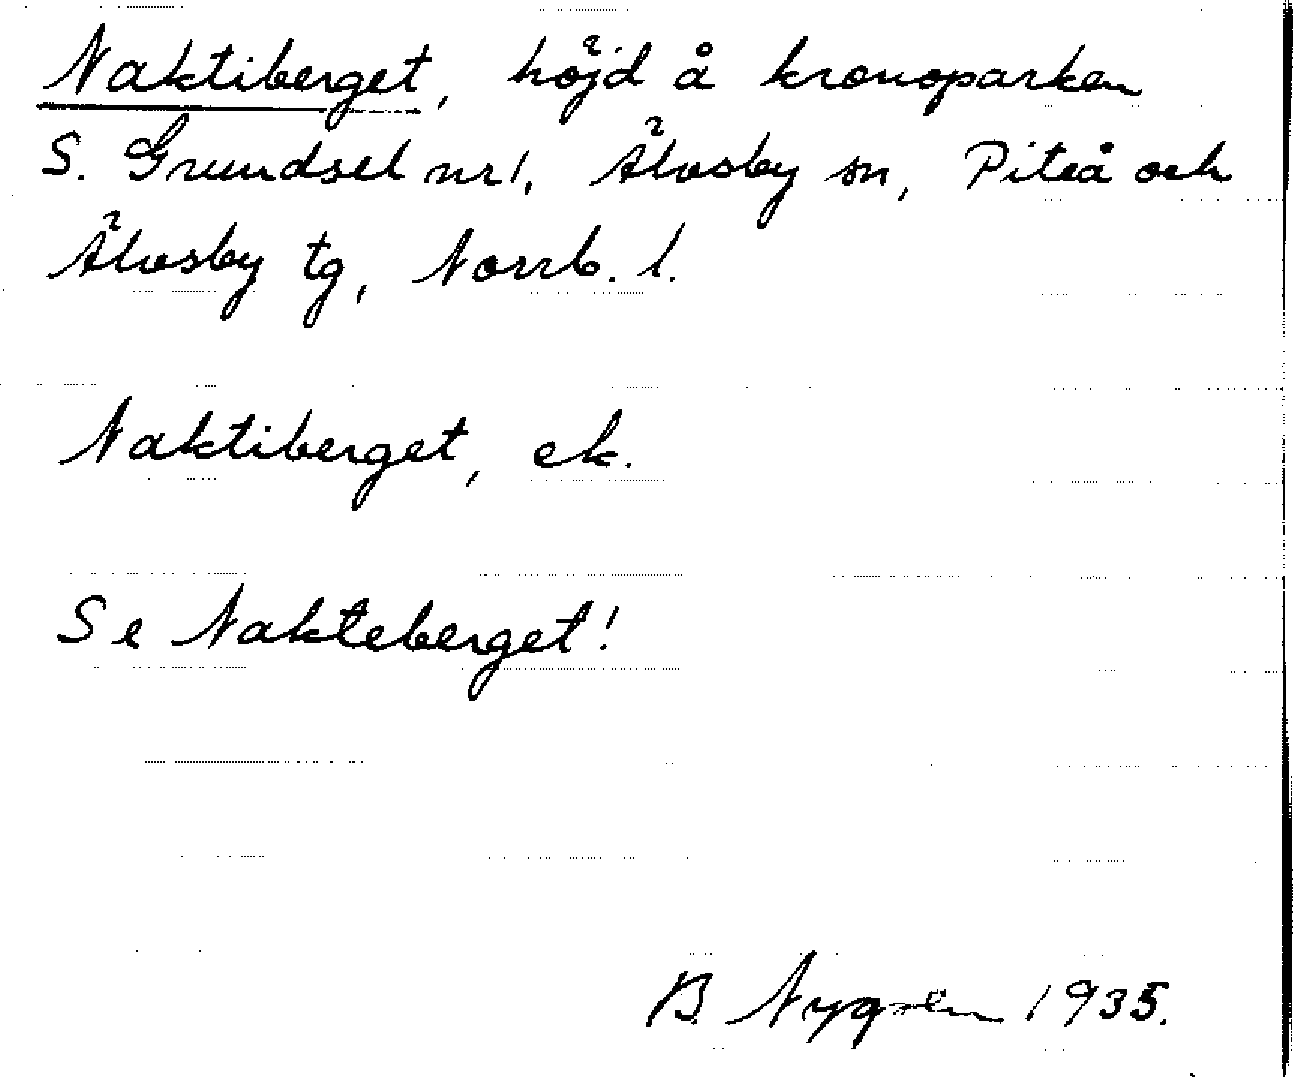 Naktiberget, höjd å kronoparken
S. Grundsel nr 1, Älvsby sn, Piteå och
Älvsby tg, Norrb. l.
Naktiberget, ek.
Se Nakteberget!
B. Nygren 1935.